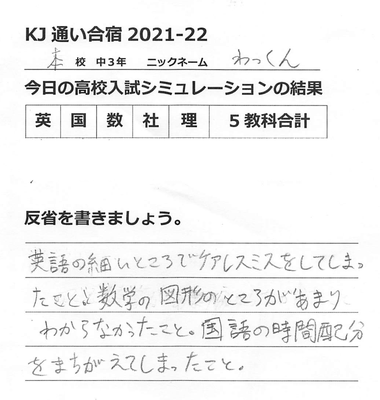 KJ 通い合宿 2021-22
本 校 中3年 ニックネーム わっくん
今日の高校入試シミュレーションの結果
英 国 数 社 理 5教科合計
反省を書きましょう。
英語の細いところでケアレスミスをしてしまっ
たことと数学の図形のところがあまり
わからなかったこと。国語の時間配分
をまちがえてしまったこと。